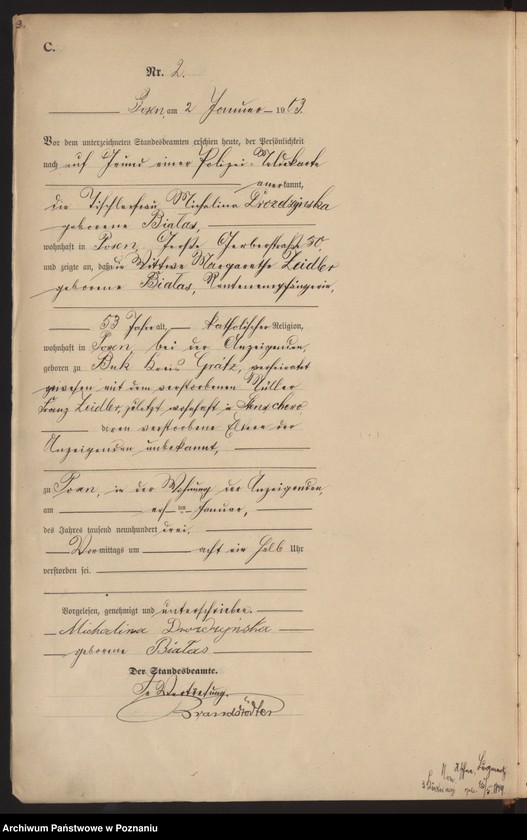 3.
C.
Nr. 2.
Posen, am 2 Januar 1903.
Vor dem unterzeichneten Standesbeamten erschien heute, der Persönlichkeit
nach auf Grund einer Polizei-Meldekarte
anerkannt,
die Tischlerfrau Michalina Drozdzyńska
geborene Białas,
wohnhaft in Posen, Große Gerberstraße 50,
und zeigte an, daß die Wittwe Margarethe Zeidler
geborene Białas, Rentenempfängerin,
53 Jahre alt, katholischer Religion,
wohnhaft in Posen, bei der Anzeigenden,
geboren zu Buk Kreis Grätz, verheiratet
gewesen mit dem verstorbenen Müller
Franz Zeidler, zuletzt wohnhaft in
deren verstorbene Eltern der
Anzeigenden unbekannt,
zu Posen, in der Wohnung der Anzeigenden,
am ersten Januar,
des Jahres tausend neunhundert drei,
Vormittags um acht ein halb Uhr
verstorben sei.
Vorgelesen, genehmigt und unterschrieben.
Michalina Drozdzyńska
geborene Białas
Der Standesbeamte.
In Vertretung.
Brandstädter
Archiwum Państwowe w Poznaniu